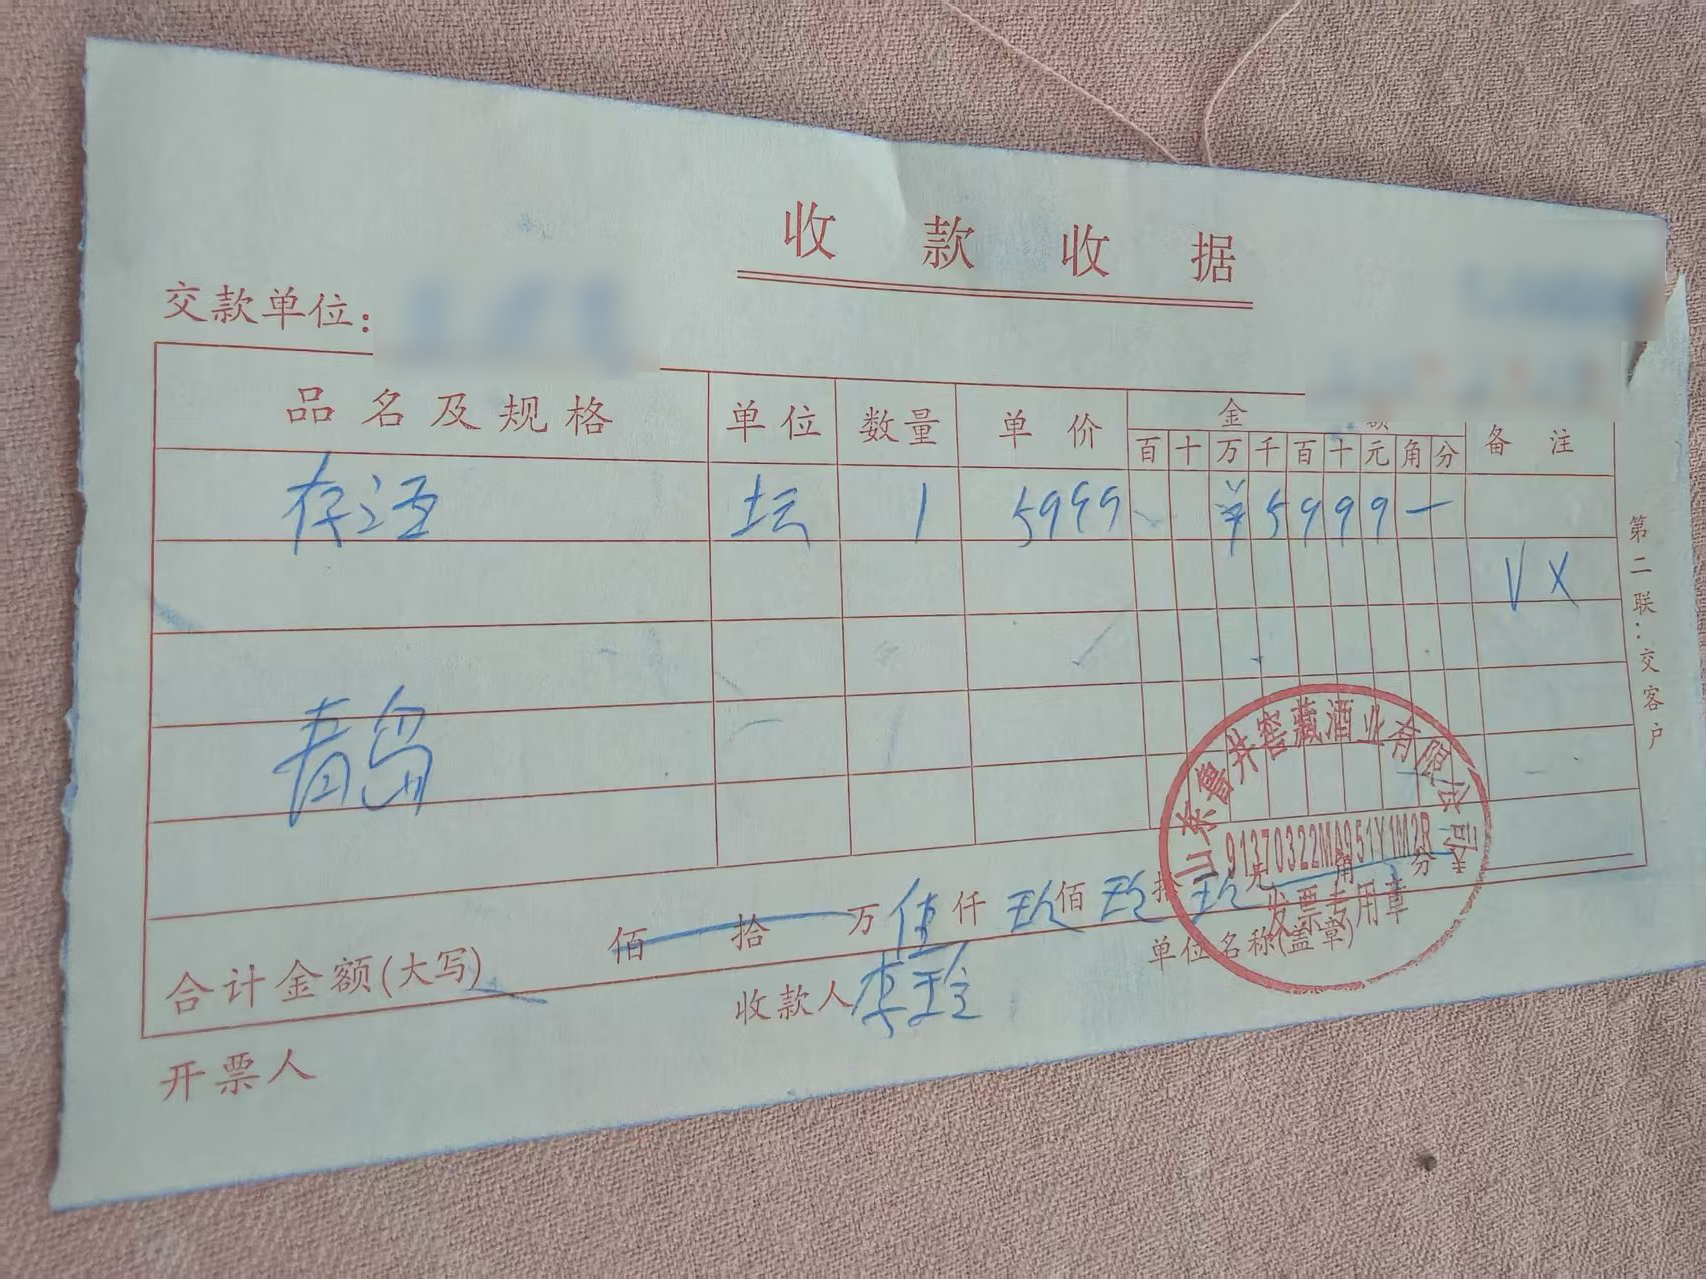 收款收据
交款单位:
品名及规格 单位 数量 单价 金额 备注
百 十 万 千 百 十 元 角 分
存酒 坛 1 5999 ¥ 5 9 9 9 一
VX
青岛
合计金额(大写) 佰 拾 万 伍 仟 玖 佰 玖 拾 玖 元 角 分
开票人 收款人 李玲 单位名称(盖章)
第二联:交客户
山东鲁井窖藏酒业有限公司
91370322MA951Y1M2R
发票专用章